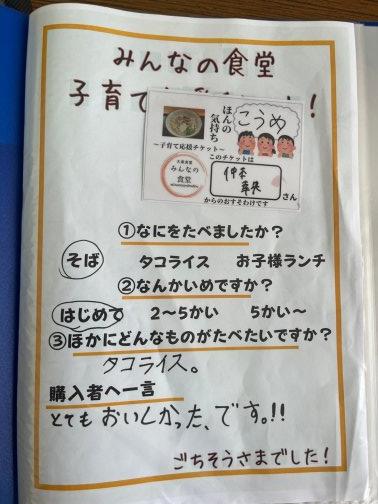 みんなの食堂
子育て
！
ほんの
気持ち
こうめ
～子育て応援チケット～
このチケットは
みんなの
食堂
さん
からのおすそわけです
①なにをたべましたか？
そば タコライス お子様ランチ
②なんかいめですか？
はじめて 2～5かい 5かい～
③ほかにどんなものがたべたいですか？
タコライス。
購入者へ一言
とてもおいしかった、です。!!
ごちそうさまでした！